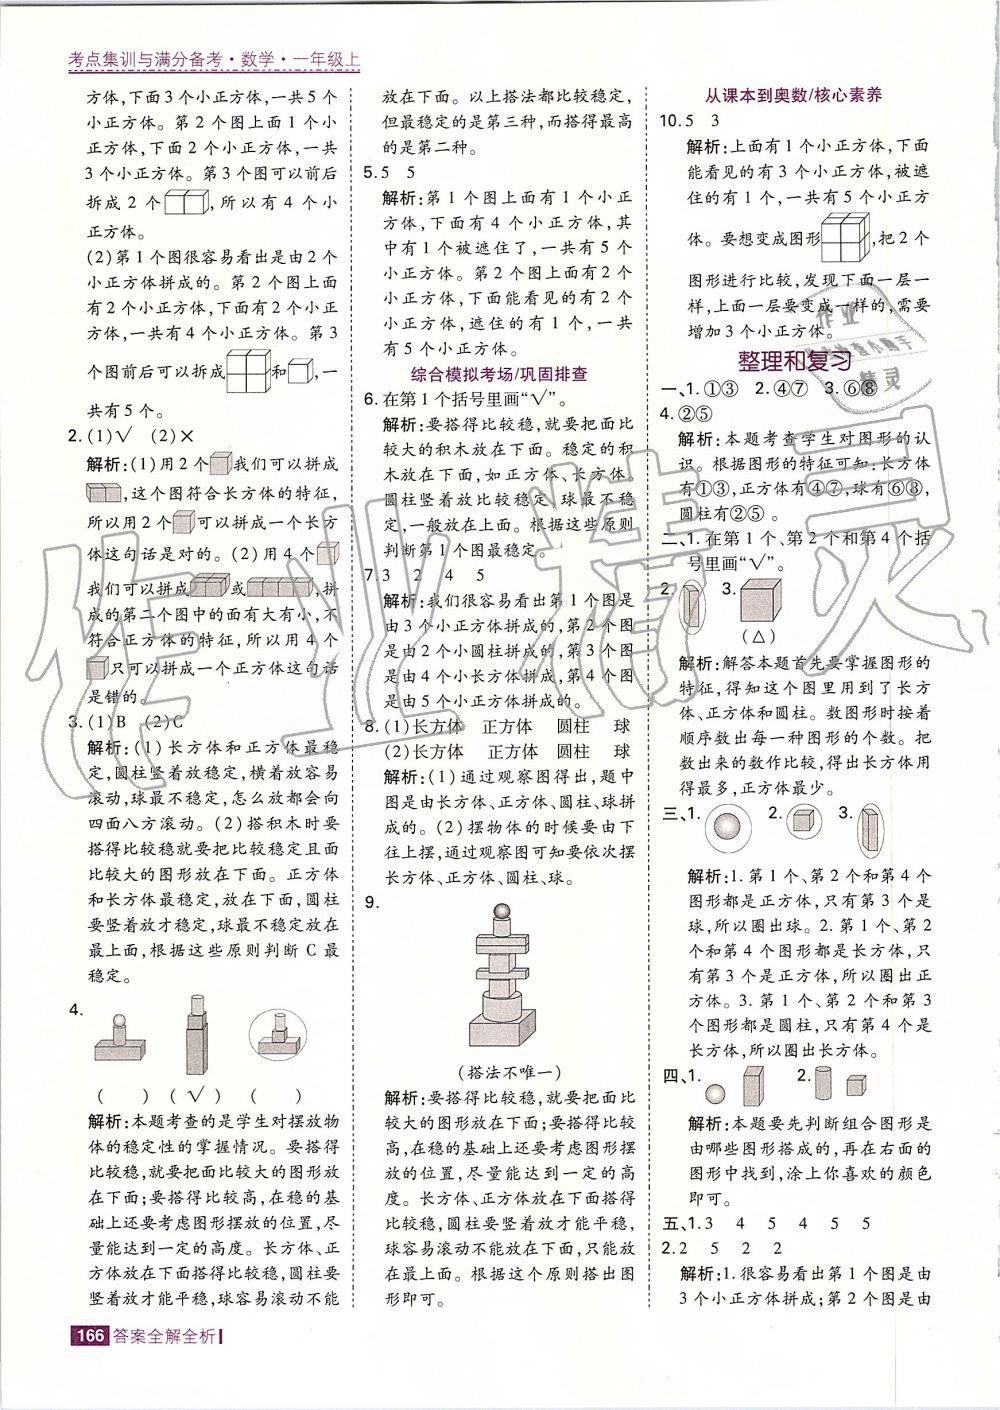 考点集训与满分备考·数学·一年级上
方体,下面3个小正方体,一共5个
小正方体。第2个图上面1个小
正方体,下面2个小正方体,一共
3个小正方体。第3个图可以前后
拆成2个,所以有4个小
正方体。
(2)第1个图很容易看出是由2个
小正方体拼成的。第2个图上面
有2个小正方体,下面有2个小正
方体,一共有4个小正方体。第3
个图前后可以拆成和,一
共有5个。
2.(1)√ (2)×
解析:(1)用2个我们可以拼成
,这个图符合长方体的特征,
所以用2个可以拼成一个长方
体这句话是对的。(2)用4个
我们可以拼成或,拼
成的第二个图中的面有大有小,不
符合正方体的特征,所以用4个
只可以拼成一个正方体这句话
是错的。
3.(1)B (2)C
解析:(1)长方体和正方体最稳
定,圆柱竖着放稳定,横着放容易
滚动,球最不稳定,怎么放都会向
四面八方滚动。(2)搭积木时要
搭得比较稳就要把比较稳定且面
比较大的图形放在下面。正方体
和长方体最稳定,放在下面,圆柱
要竖着放才稳定,球最不稳定放在
最上面,根据这些原则判断C最
稳定。
4.
( ) (√) ( )
解析:本题考查的是学生对摆放物
体的稳定性的掌握情况。要搭得
比较稳,就要把面比较大的图形放
在下面;要搭得比较高,在稳的基
础上还要考虑图形摆放的位置,尽
量能达到一定的高度。长方体、正
方体放在下面搭得比较稳,圆柱要
竖着放才能平稳,球容易滚动不能
放在下面。以上搭法都比较稳定,
但最稳定的是第三种,而搭得最高
的是第二种。
5.5 5
解析:第1个图上面有1个小正
方体,下面有4个小正方体,其
中有1个被遮住了,一共有5个
小正方体。第2个图上面有2个
小正方体,下面能看见的有2个
小正方体,遮住的有1个,一共
有5个小正方体。
综合模拟考场/巩固排查
6.在第1个括号里画“√”。
解析:要搭得比较稳,就要把面比
较大的积木放在下面。稳定的积
木放在下面,如正方体、长方体、
圆柱竖着放比较稳定,球最不稳
定,一般放在上面。根据这些原则
判断第1个图最稳定。
7.3 2 4 5
解析:我们很容易看出第1个图是
由3个小正方体拼成的,第2个图
是由2个小圆柱拼成的,第3个图
是由4个小长方体拼成的,第4个图
是由5个小正方体拼成的。
8.(1)长方体 正方体 圆柱 球
(2)长方体 正方体 圆柱 球
解析:(1)通过观察图得出,题中
图是由长方体、正方体、圆柱、球拼
成的。(2)摆物体的时候要由下
往上摆,通过观察图可知要依次摆
长方体、正方体、圆柱、球。
9.
(搭法不唯一)
解析:要搭得比较稳,就要把面比
较大的图形放在下面;要搭得比较
高,在稳的基础上还要考虑图形摆
放的位置,尽量能达到一定的高
度。长方体、正方体放在下面搭得
比较稳,圆柱要竖着放才能平稳,
球容易滚动不能放在下面,只能放
在最上面。根据这个原则搭出图
形即可。
从课本到奥数/核心素养
10.5 3
解析:上面有1个小正方体,下面
能看见的有3个小正方体,被遮
住的有1个,一共有5个小正方
体。要想变成图形,把2个
图形进行比较,发现下面一层一
样,上面一层要变成一样的,需要
增加3个小正方体。
整理和复习
一、1.①③ 2.④⑦ 3.⑥⑧
4.②⑤
解析:本题考查学生对图形的认
识。根据图形的特征可知:长方体
有①③,正方体有④⑦,球有⑥⑧,
圆柱有②⑤。
二、1.在第1个、第2个和第4个括
号里画“√”。
2. 3.
(△)
解析:解答本题首先要掌握图形的
特征,得知这个图里用到了长方
体、正方体和圆柱。数图形时按着
顺序数出每一种图形的个数。把
数出来的数作比较,得出长方体用
得最多,正方体最少。
三、1. 2. 3.
解析:1.第1个、第2个和第4个
图形都是正方体,只有第3个是
球,所以圈出球。2.第1个、第2
个和第4个图形都是长方体,只
有第3个是正方体,所以圈出正
方体。3.第1个、第2个和第3
个图形都是圆柱,只有第4个是
长方体,所以圈出长方体。
四、1. 2.
解析:本题要先判断组合图形是
由哪些图形搭成的,再在右面的
图形中找到,涂上你喜欢的颜色
即可。
五、1.3 4 5 4 5 5
2.2 5 2 2
解析:1.很容易看出第1个图是由
3个小正方体拼成;第2个图是由
166 答案全解全析
作业精灵